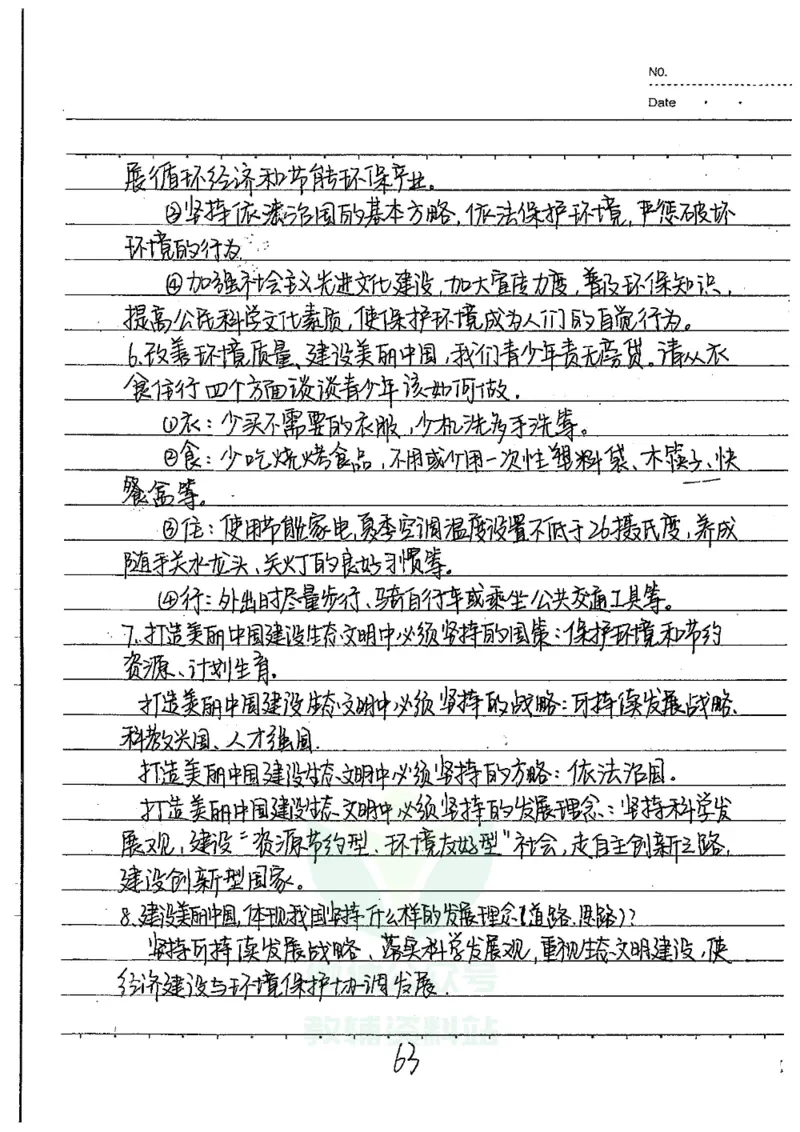 NO.
Date
展循环经济和节能环保产业。
③坚持依法治国的基本方略,依法保护环境,严惩破坏
环境的行为
④加强社会主义先进文化建设,加大宣传力度,普及环保知识,
提高公民科学文化素质,使保护环境成为人们的自觉行为。
6.改善环境质量、建设美丽中国,我们青少年责无旁贷。请从衣
食住行四个方面谈谈青少年该如何做.
①衣:少买不需要的衣服,少机洗多手洗等。
②食:少吃烧烤食品,不用或少用一次性塑料袋、木筷子、快
餐盒等。
③住:使用节能家电,夏季空调温度设置不低于26摄氏度,养成
随手关水龙头、关灯的良好习惯等。
④行:外出时尽量步行、骑自行车或乘坐公共交通工具等。
7.打造美丽中国建设生态文明中必须坚持的国策:保护环境和节约
资源、计划生育。
打造美丽中国建设生态文明中必须坚持的战略:可持续发展战略、
科教兴国、人才强国.
打造美丽中国建设生态文明中必须坚持的方略:依法治国。
打造美丽中国建设生态文明中必须坚持的发展理念:坚持科学发
展观,建设“资源节约型、环境友好型”社会,走自主创新之路,
建设创新型国家。
8.建设美丽中国,体现我国坚持什么样的发展理念(道路、思路)?
坚持可持续发展战略、落实科学发展观,重视生态文明建设,使
经济建设与环境保护协调发展.
教辅资料站
63